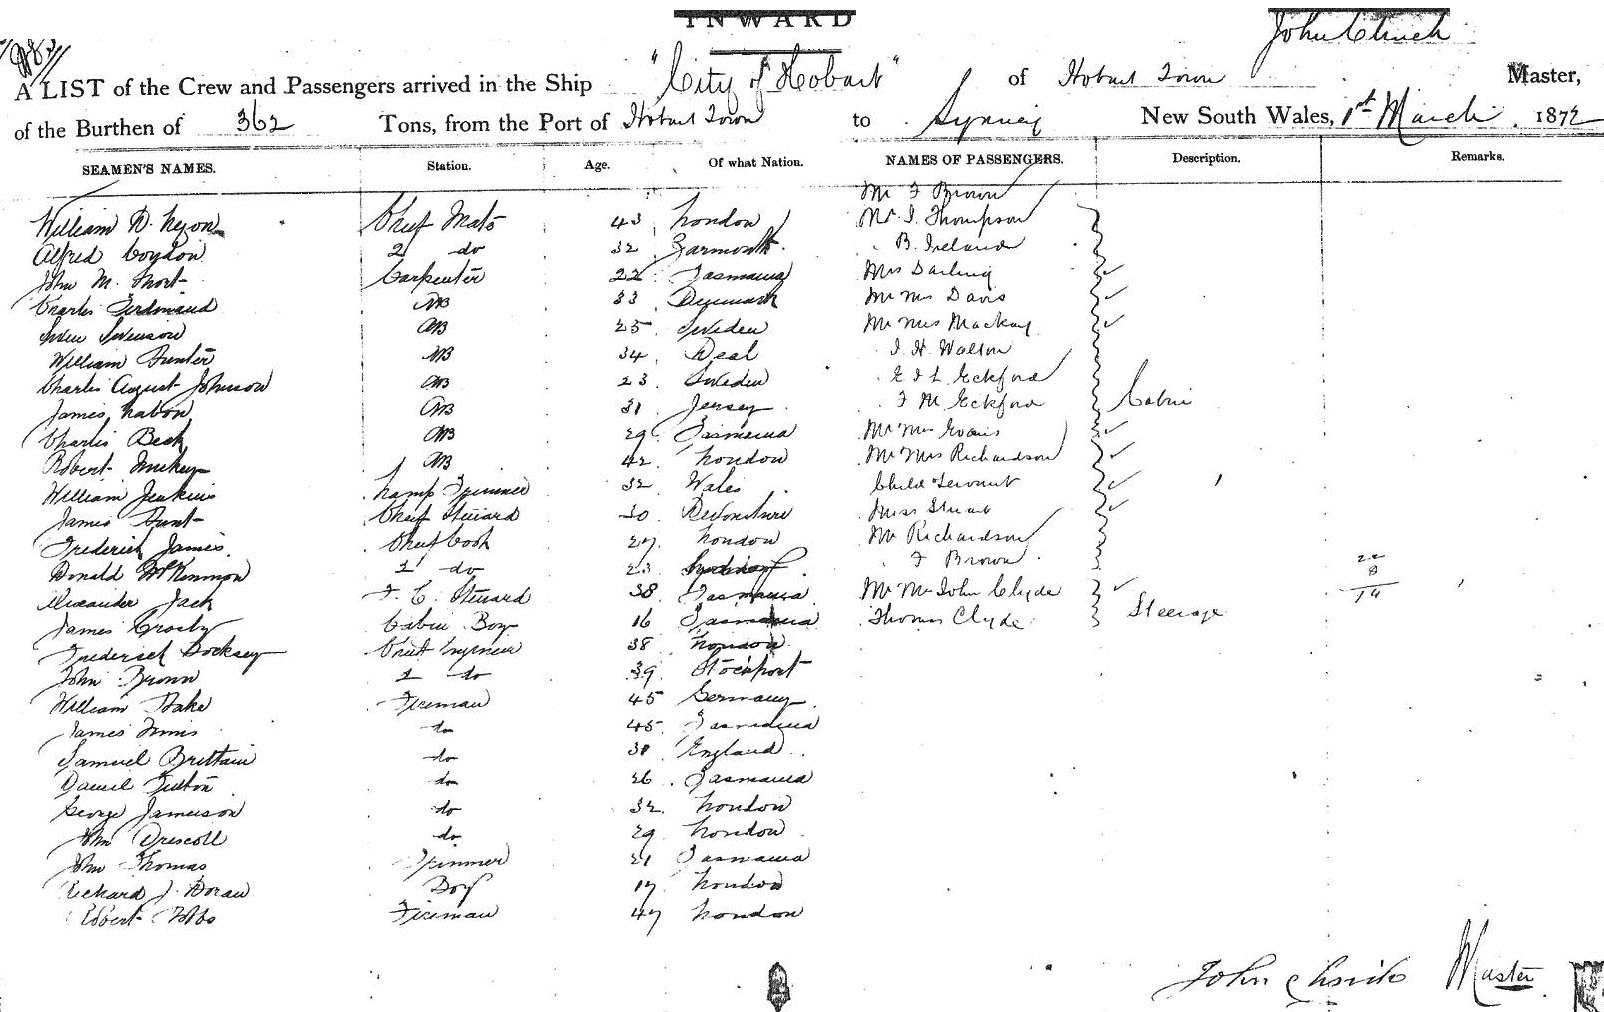 INWARD
John Clinch
A LIST of the Crew and Passengers arrived in the Ship "City of Hobart" of Hobart Town Master,
of the Burthen of 362 Tons, from the Port of Hobart Town to Sydney New South Wales, 1st March 1872
SEAMEN'S NAMES. Station. Age. Of what Nation. NAMES OF PASSENGERS. Description. Remarks.
Mr F Brown
William D. Chief Mate 43 London Mr J. Thompson
Alfred 2 do 32 Yarmouth B. Ireland
John M. Short Carpenter 22 Tasmania Mrs Darling
Charles Ferdinand AB 33 Denmark Mr Mrs Davis
Swen Swenson AB 25 Sweden Mr Mrs Mackay
William Hunter AB 34 Deal J. H. Walton
Charles August Johnson AB 23 Sweden E J L Eckford
James AB 31 Jersey F M Eckford Cabin
Charles Beck AB 29 Tasmania Mr Mrs Evans
Robert AB 42 London Mr Mrs Richardson
William Jenkins Lamp Trimmer 32 Wales Child Servant
James Hunt Chief Steward 30 Devonshire Miss Stuart
Frederick James Chief Cook 27 London Mr Richardson
Donald McKinnon 2 do 23 F Brown 22
8
Alexander Jack F. C. Steward 38 Tasmania Mr Mrs John Clyde 14
James Crosby Cabin Boy 16 Tasmania Thomas Clyde Steerage
Frederick Docksey Chief Engineer 38 London
John Brown 2 do 39 Stockport
William Hake Fireman 45 Germany
James do 45 Tasmania
Samuel Brittain do 31 England
Daniel do 26 Tasmania
George Jameson do 32 London
John Driscoll do 29 London
John Thomas Trimmer 21 Tasmania
Richard J. Doran Boy 17 London
Robert Fireman 47 London
John Clinch Master